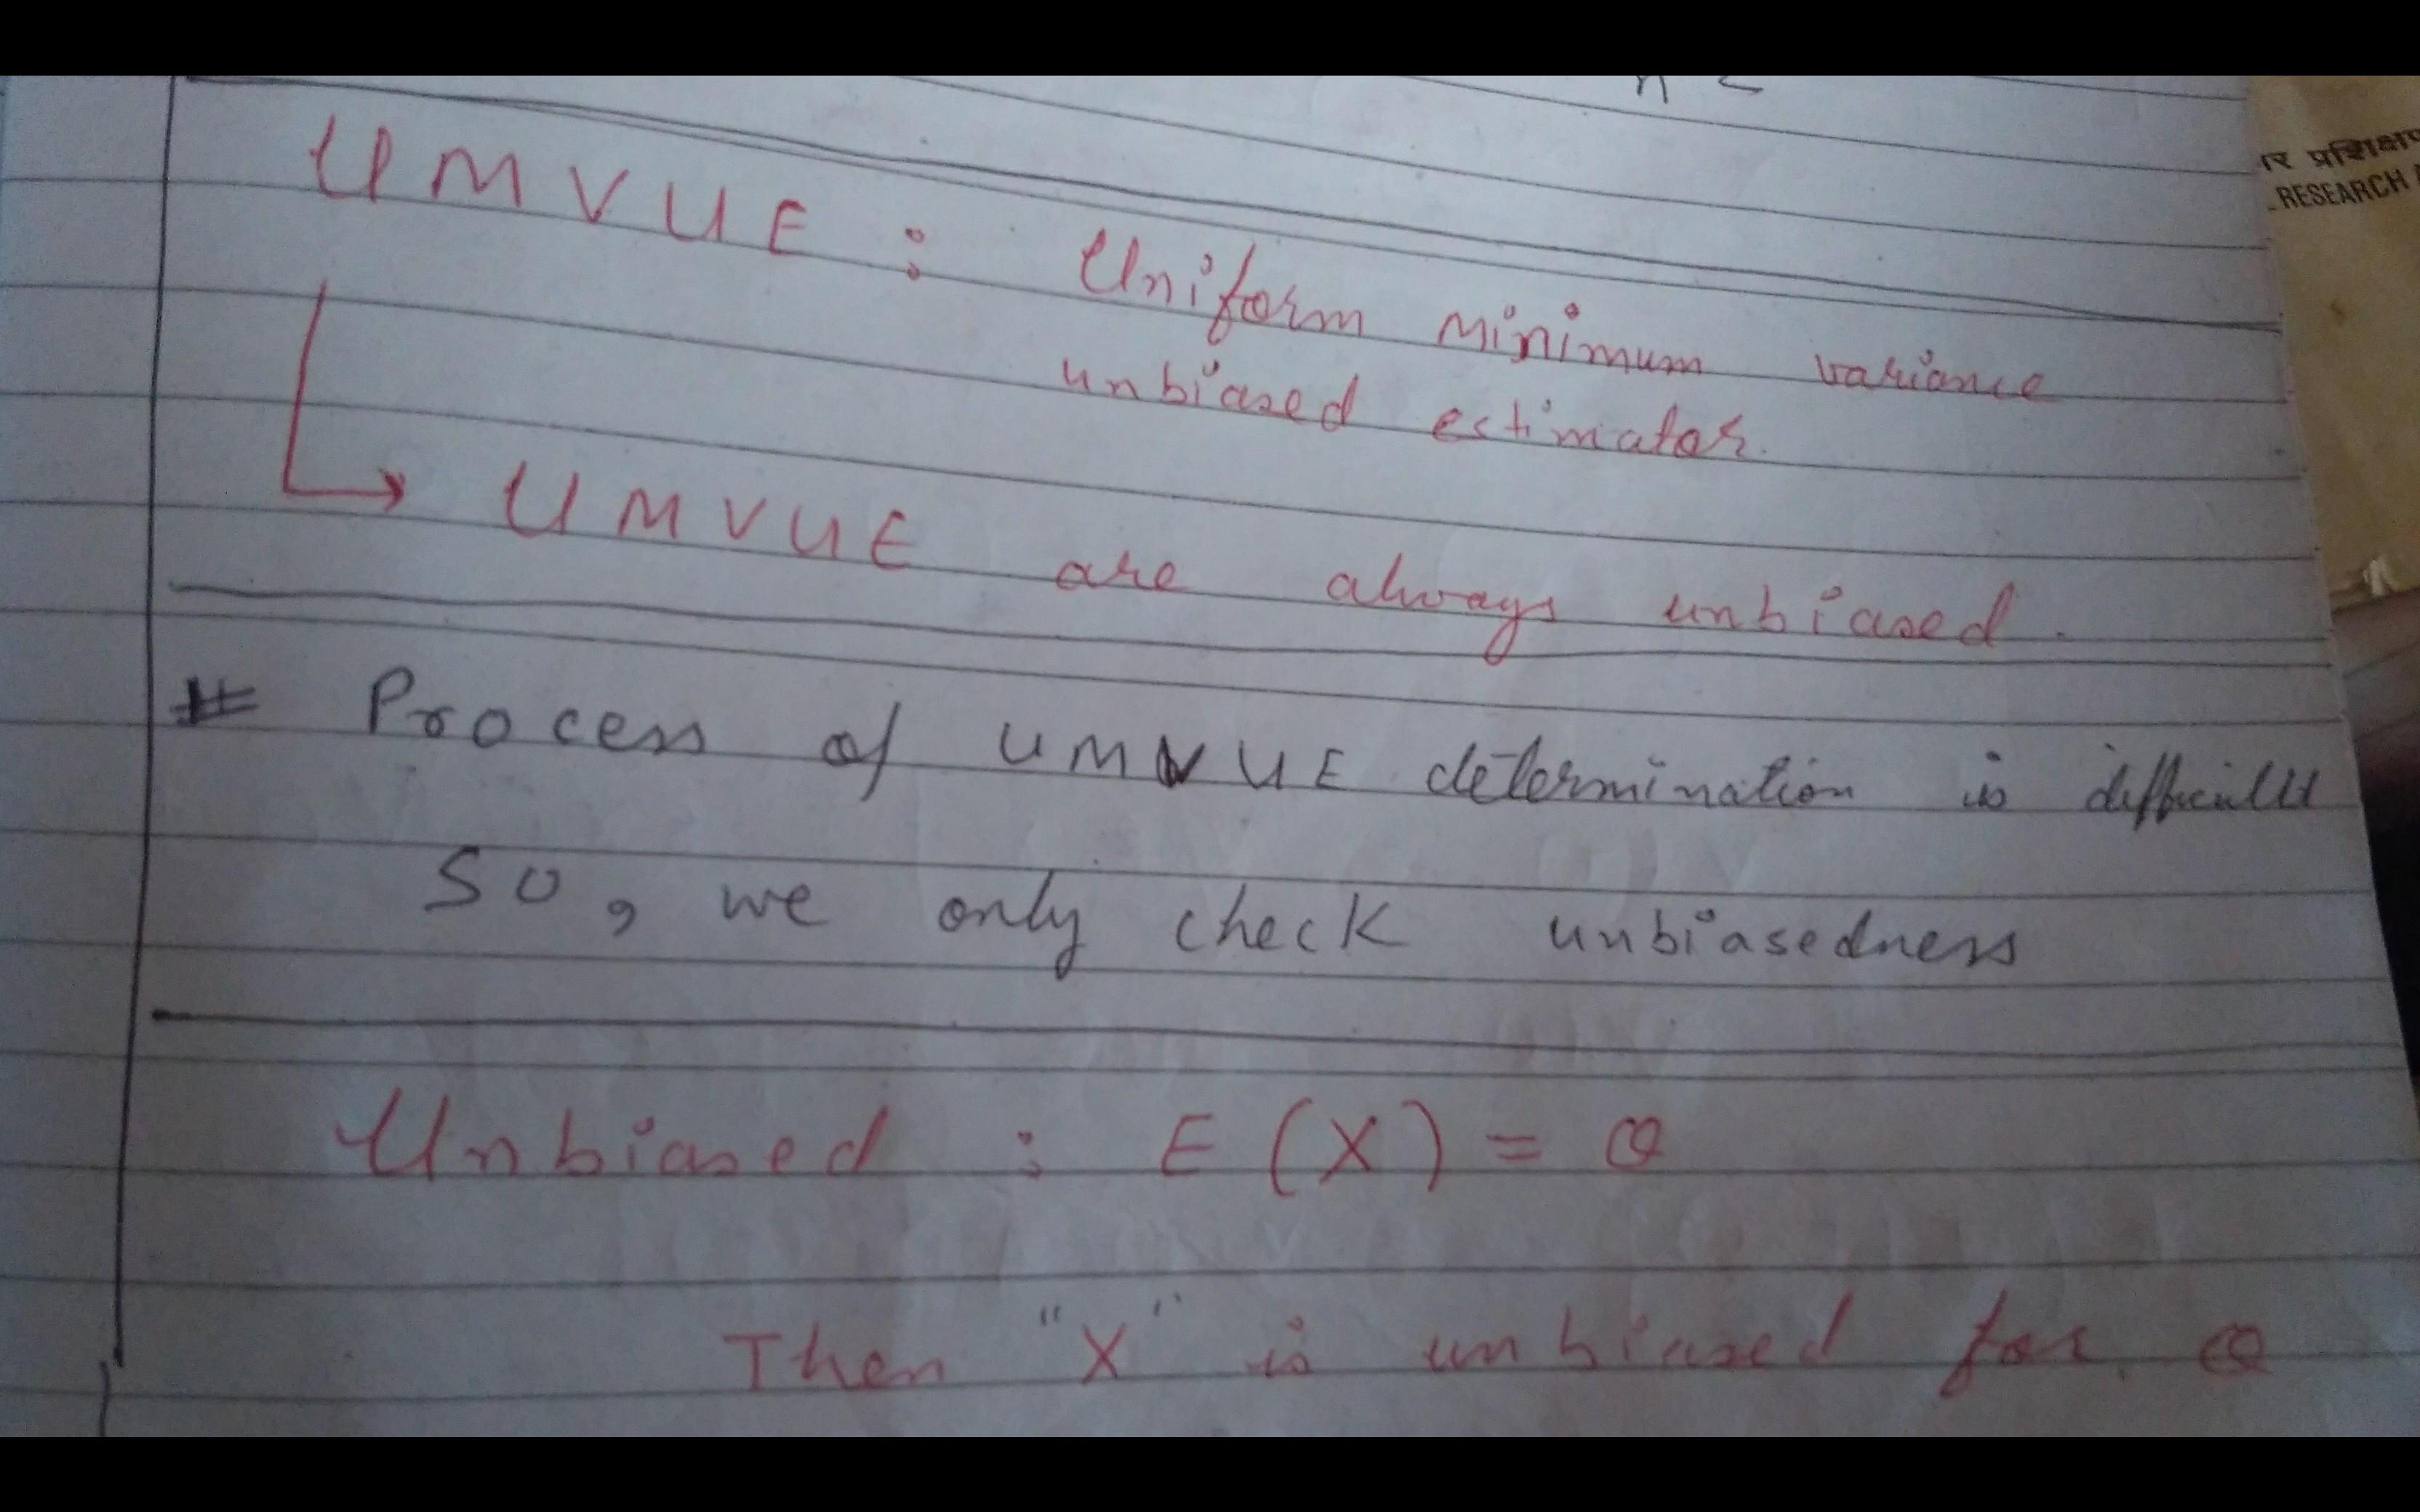 UMVUE : Uniform minimum variance
unbiased estimator.
UMVUE are always unbiased.
# Process of UMVUE determination is difficult
so, we only check unbiasedness
Unbiased : E (X) = θ
Then "X" is unbiased for θ
RESEARCH